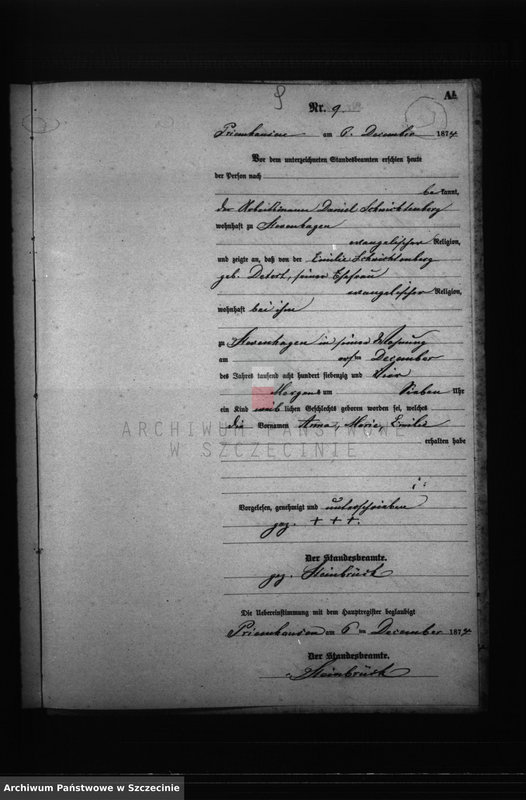 9
A.
Nr. 9.
am 6. December 1874
Vor dem unterzeichneten Standesbeamten erschien heute
der Person nach
be kannt,
der Arbeitsmann Daniel Schwichtenberg
wohnhaft zu Stevenhagen
evangelischer Religion,
und zeigte an, daß von der Emilie Schwichtenberg
geb. Detert, seiner Ehefrau
evangelischer Religion,
wohnhaft bei ihm
zu Stevenhagen in seiner Wohnung
am ersten December
des Jahres tausend acht hundert siebenzig und vier
Morgens um sieben Uhr
ein Kind weib lichen Geschlechts geboren worden sei, welches
die Vornamen Anna, Marie, Emilie
erhalten habe
ARCHIWUM PAŃSTWOWE
W SZCZECINIE
Vorgelesen, genehmigt und unterschrieben
gez. + + +.
Der Standesbeamte.
gez. Steinbrück
Die Uebereinstimmung mit dem Hauptregister beglaubigt
Priemhausen am 6 ten December 1874
Der Standesbeamte.
Steinbrück
Archiwum Państwowe w Szczecinie